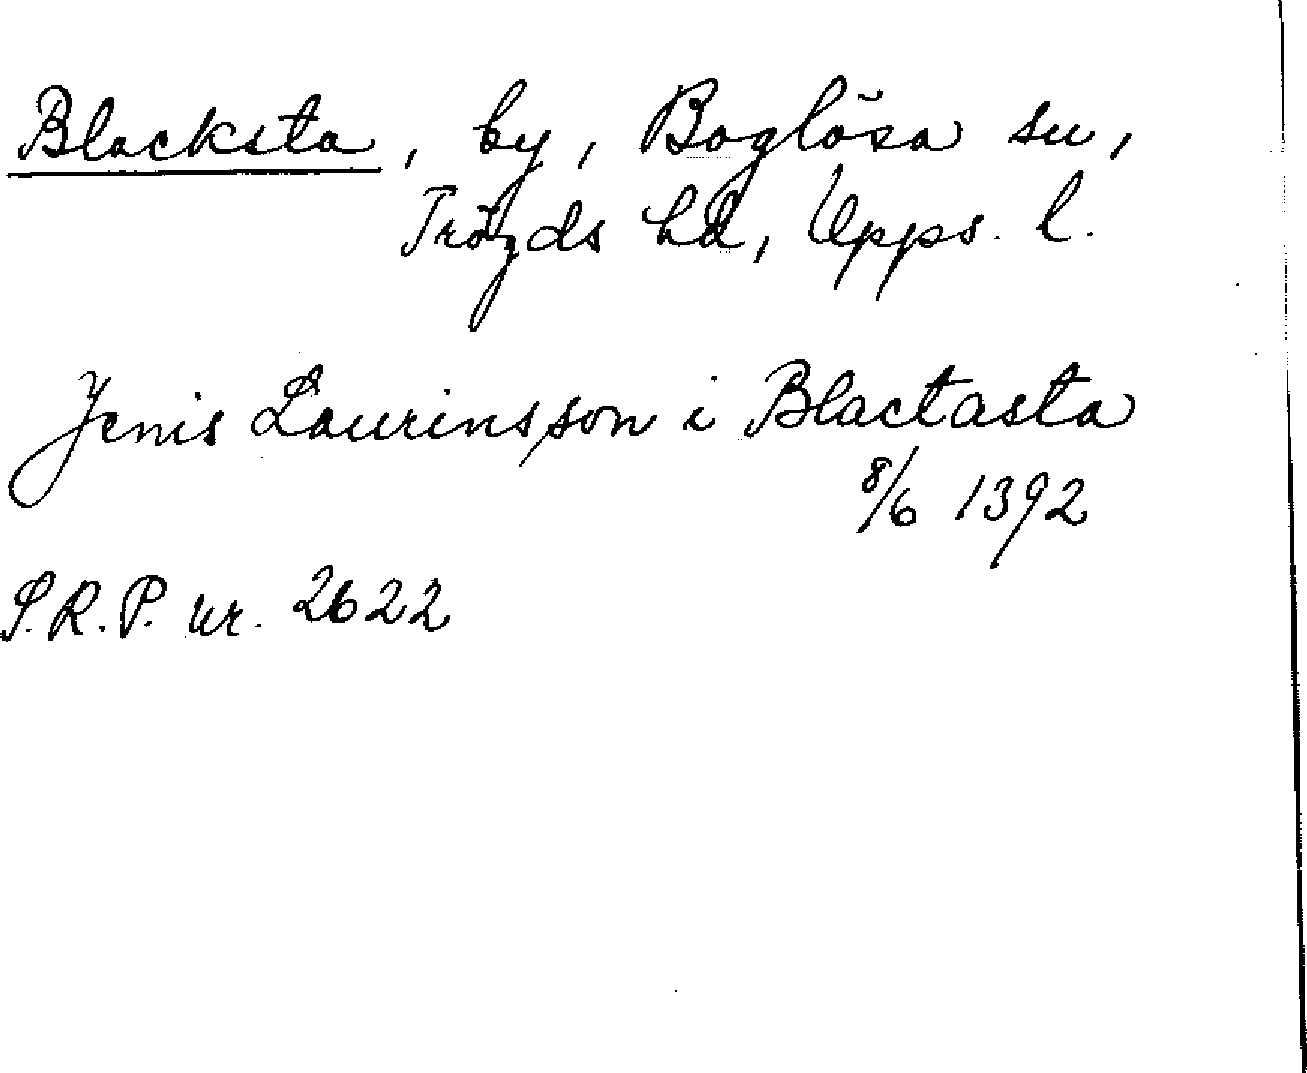 Blacksta, by, Boglösa sn,
Trögds hd, Upps. l.
Jenis Laurinsson i Blactasta
8/6 1392
S.R.P. nr. 2622